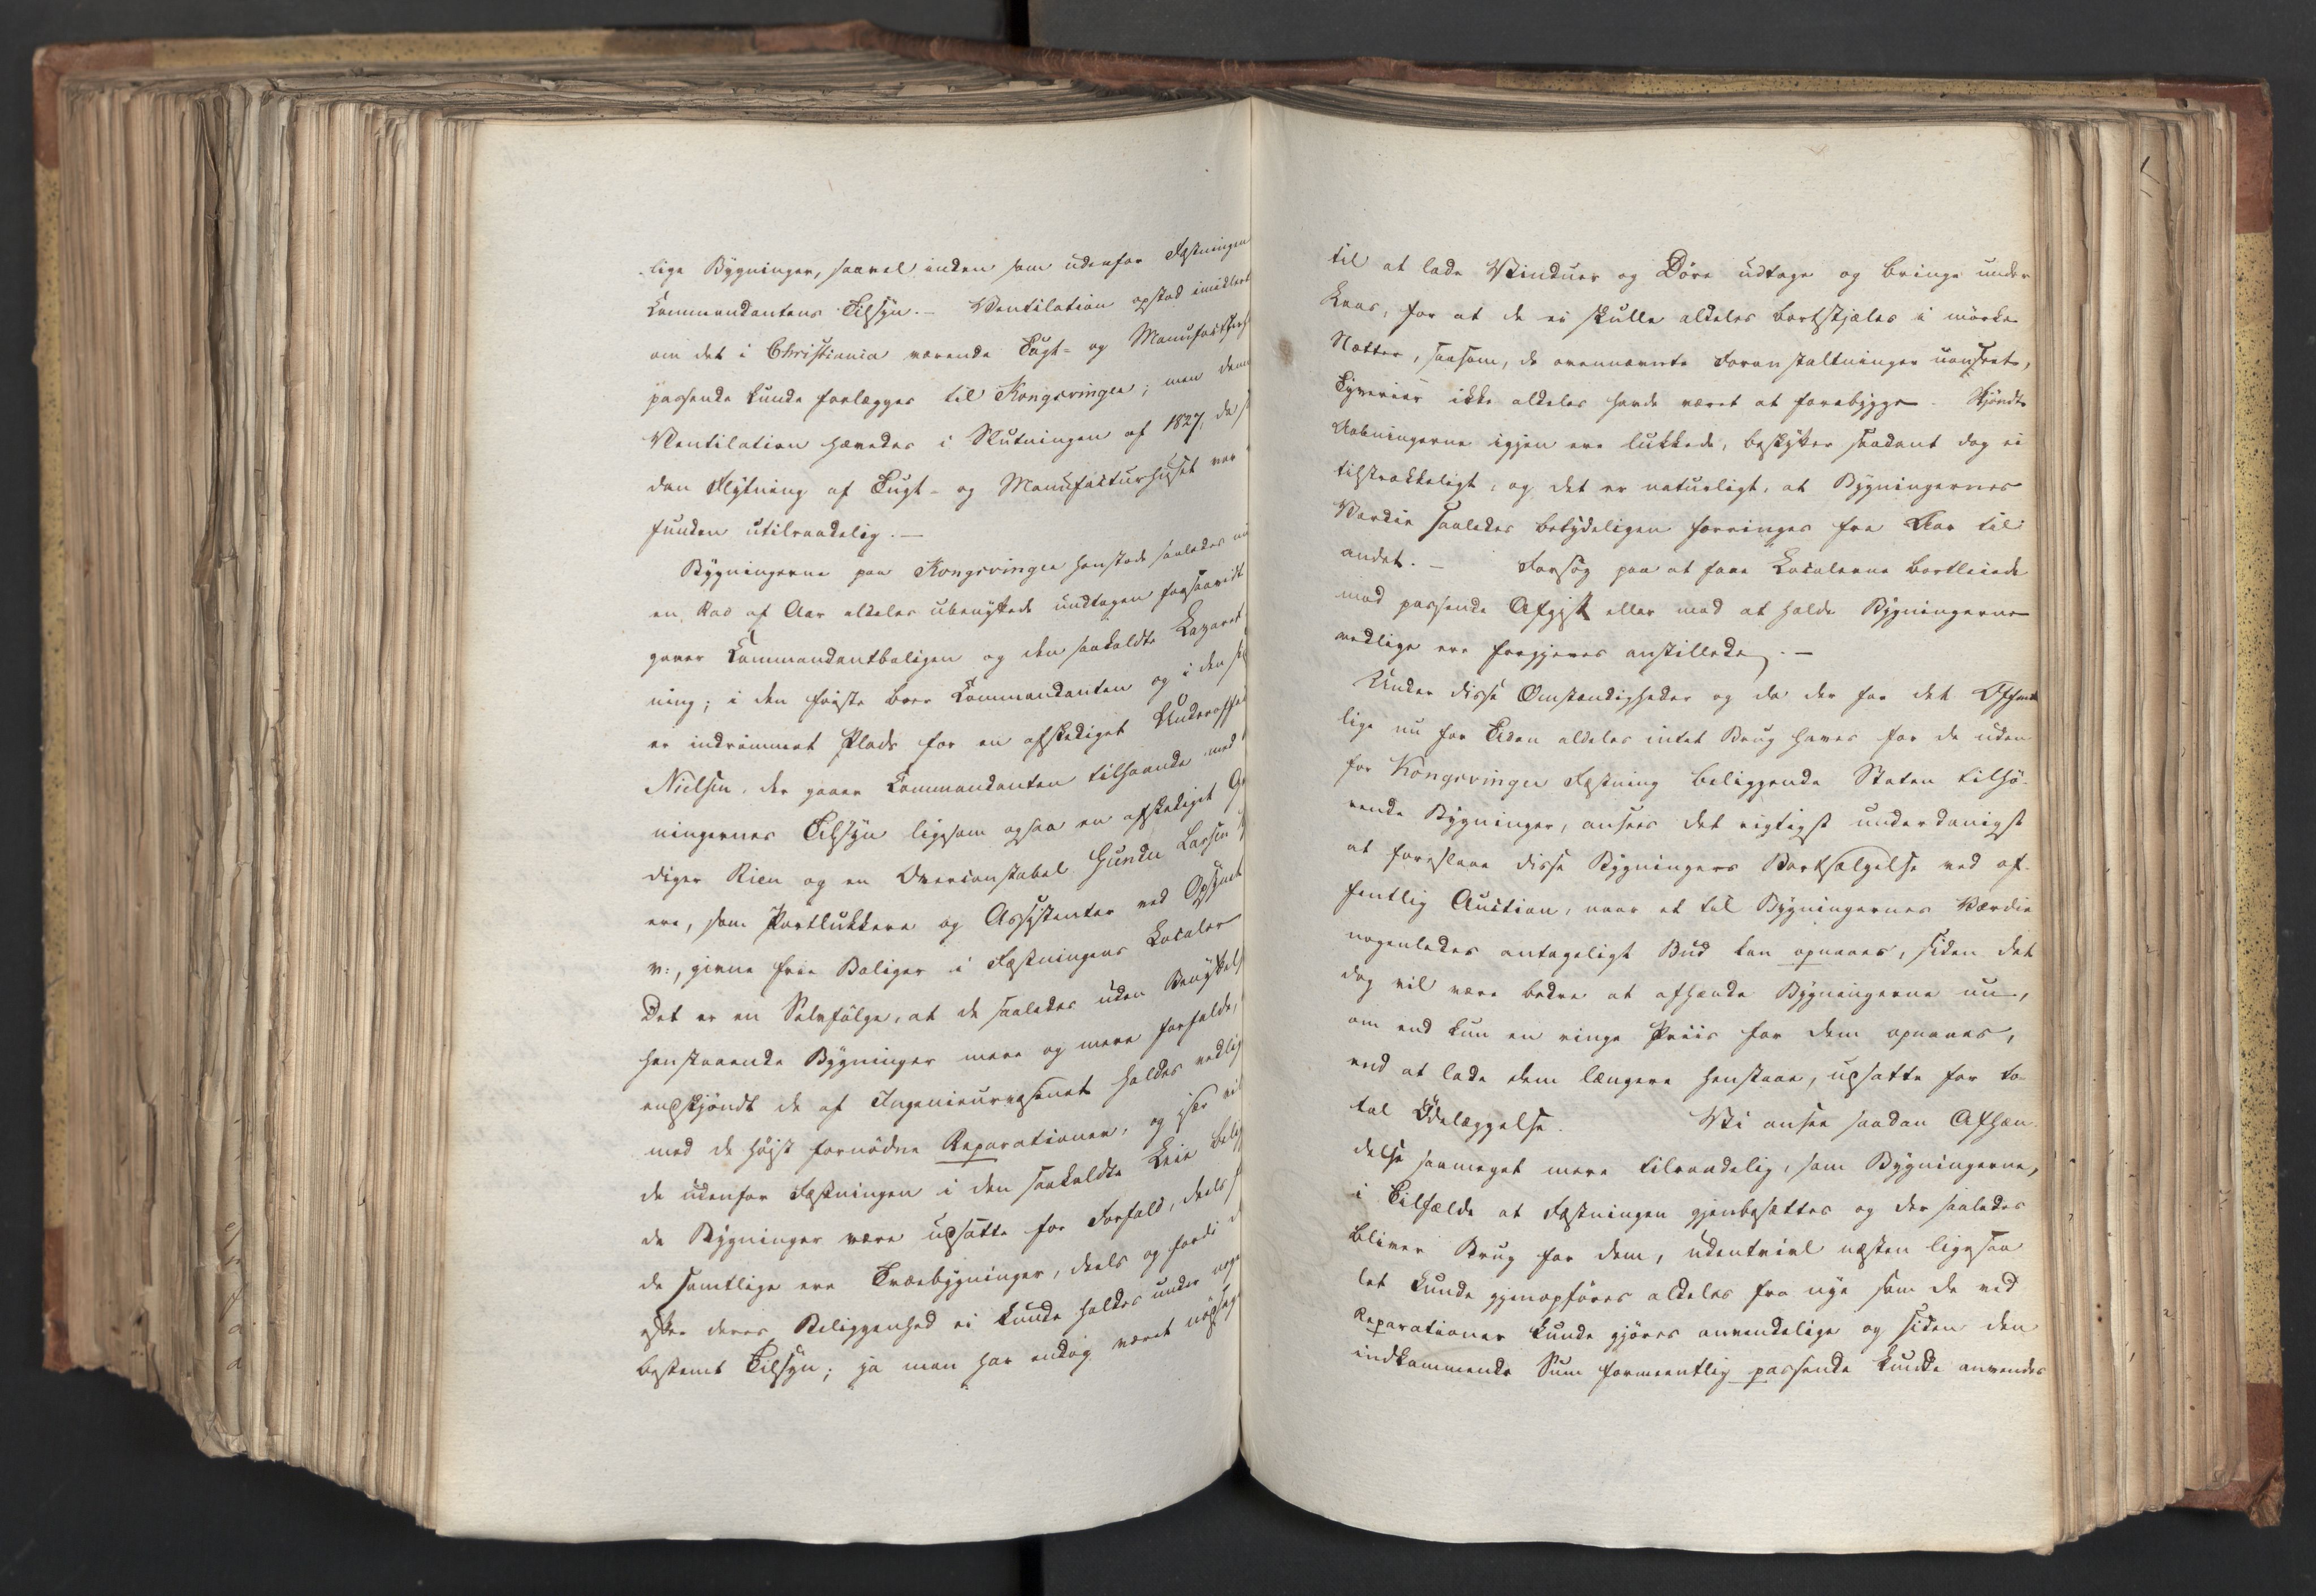 lige Bygninger, saavel inden som udenfor Fæstningen
Commandantens Tilsyn. – Ventilation opstod imidlert
om det i Christiania værende Tugt- og Manufacturh
passende kunde forlægges til Kongsvinger; men denn
Ventilation hævedes i Slutningen af 1827, da s
dan Flytning af Tugt- og Manufacturhuset var
funden utilraadelig. –
Bygningerne paa Kongsvinger henstode saaledes nu
en Rad af Aar aldeles ubenyttede undtagen forsaavidt
gaaer Commandantboligen og den saakaldte Lazaret
ning; i den første boer Commandanten og i den si
er indrømmet Plads for en afskediget Underoffi
Nielsen, der gaaer Commandanten tilhaande med
ningernes Tilsyn ligesom ogsaa en afskediget
diger Rien og en Overconstabel Gunder Larsen
ere, som Portlukkere og Assistenter ved Opsynet
v:, givne frie Boliger i Fæstningens Localer
Det er en Selvfølge, at de saaledes uden Benyttels
henstaaende Bygninger mere og mere forfalde,
endskjøndt de af Ingenieurvæsenet holdes vedlig
med de høist fornødne Reparationer, og især vil
de udenfor Fæstningen i den saakaldte Leir belig
de Bygninger være udsatte for Forfald, deels
de samtlige ere Træebygninger, deels og fordi d
efter deres Beliggenhed ei kunde holdes under noge
bestemt Tilsyn; ja man har endog været nødsag
til at lade Vinduer og Døre udtage og bringe under
Laas, for at de ei skulle aldeles bortstjæles i mørke
Nætter, saasom, de ovennævnte Foranstaltninger uanseete,
Tyverier ikke aldeles havde været at forebygge. Skjøndt
Aabningerne igjen ere lukkede, beskytter saadant dog ei
tilstrækkeligt, og det er naturligt, at Bygningernes
Værdie saaledes betydeligen forringes fra Aar til
andet. – Forsøg paa at faae Localerne bortleiede
mod passende Afgift eller mod at holde Bygningerne
vedlige ere forgjeves anstillede. –
Under disse Omstændigheder og da der for det Offent
lige nu for Tiden aldeles intet Brug haves for de uden
for Kongsvinger Fæstning beliggende Staten tilhø-
rende Bygninger, ansees det rigtigst underdanigst
at foreslaae disse Bygningers Bortsælgelse ved of-
fentlig Auction, naar et til Bygningernes Værdie
nogenledes antageligt Bud kan opnaaes, siden det
dog vil være bedre at afhænde Bygningerne nu,
om end kun en ringe Priis for dem opnaaes,
end at lade dem længere henstaae, udsatte for to-
tal Ødelæggelse. Vi ansee saadan Afhæn-
delse saameget mere tilraadelig, som Bygningerne,
i Tilfælde at Fæstningen gjenbesættes og der saaledes
bliver Brug for dem, udentvivl næsten ligesaa
let kunde gjenopføres aldeles fra nye som de ved
Reparationer kunde gjøres anvendelige og siden den
indkommende Sum formeentlig passende kunde anvendes